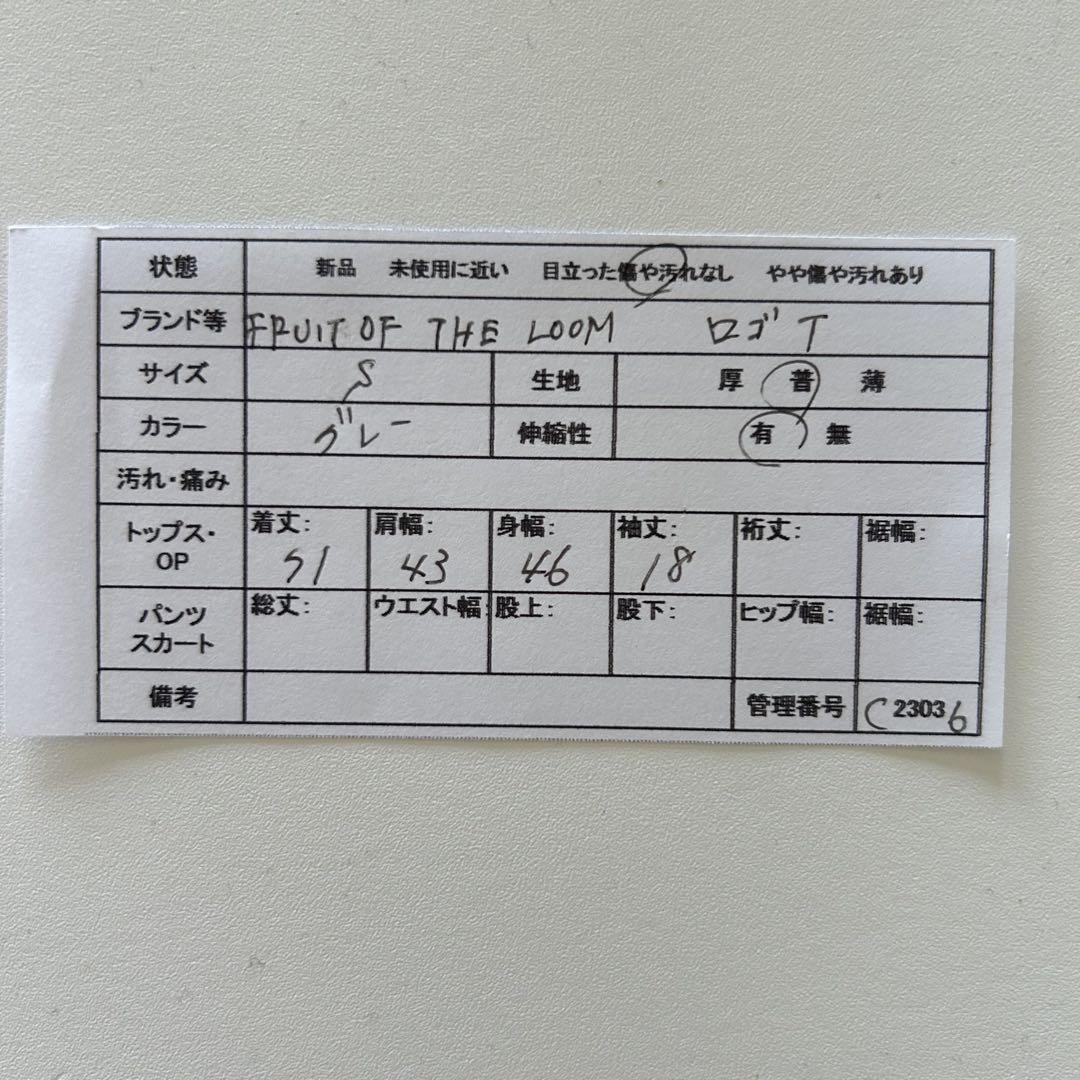 状態 新品 未使用に近い 目立った傷や汚れなし やや傷や汚れあり
ブランド等 FRUIT OF THE LOOM ロゴT
サイズ S 生地 厚 普 薄
カラー グレー 伸縮性 有 無
汚れ・痛み
トップス・OP 着丈: 51 肩幅: 43 身幅: 46 袖丈: 18 裄丈: 裾幅:
パンツスカート 総丈: ウエスト幅: 股上: 股下: ヒップ幅: 裾幅:
備考 管理番号 C23036